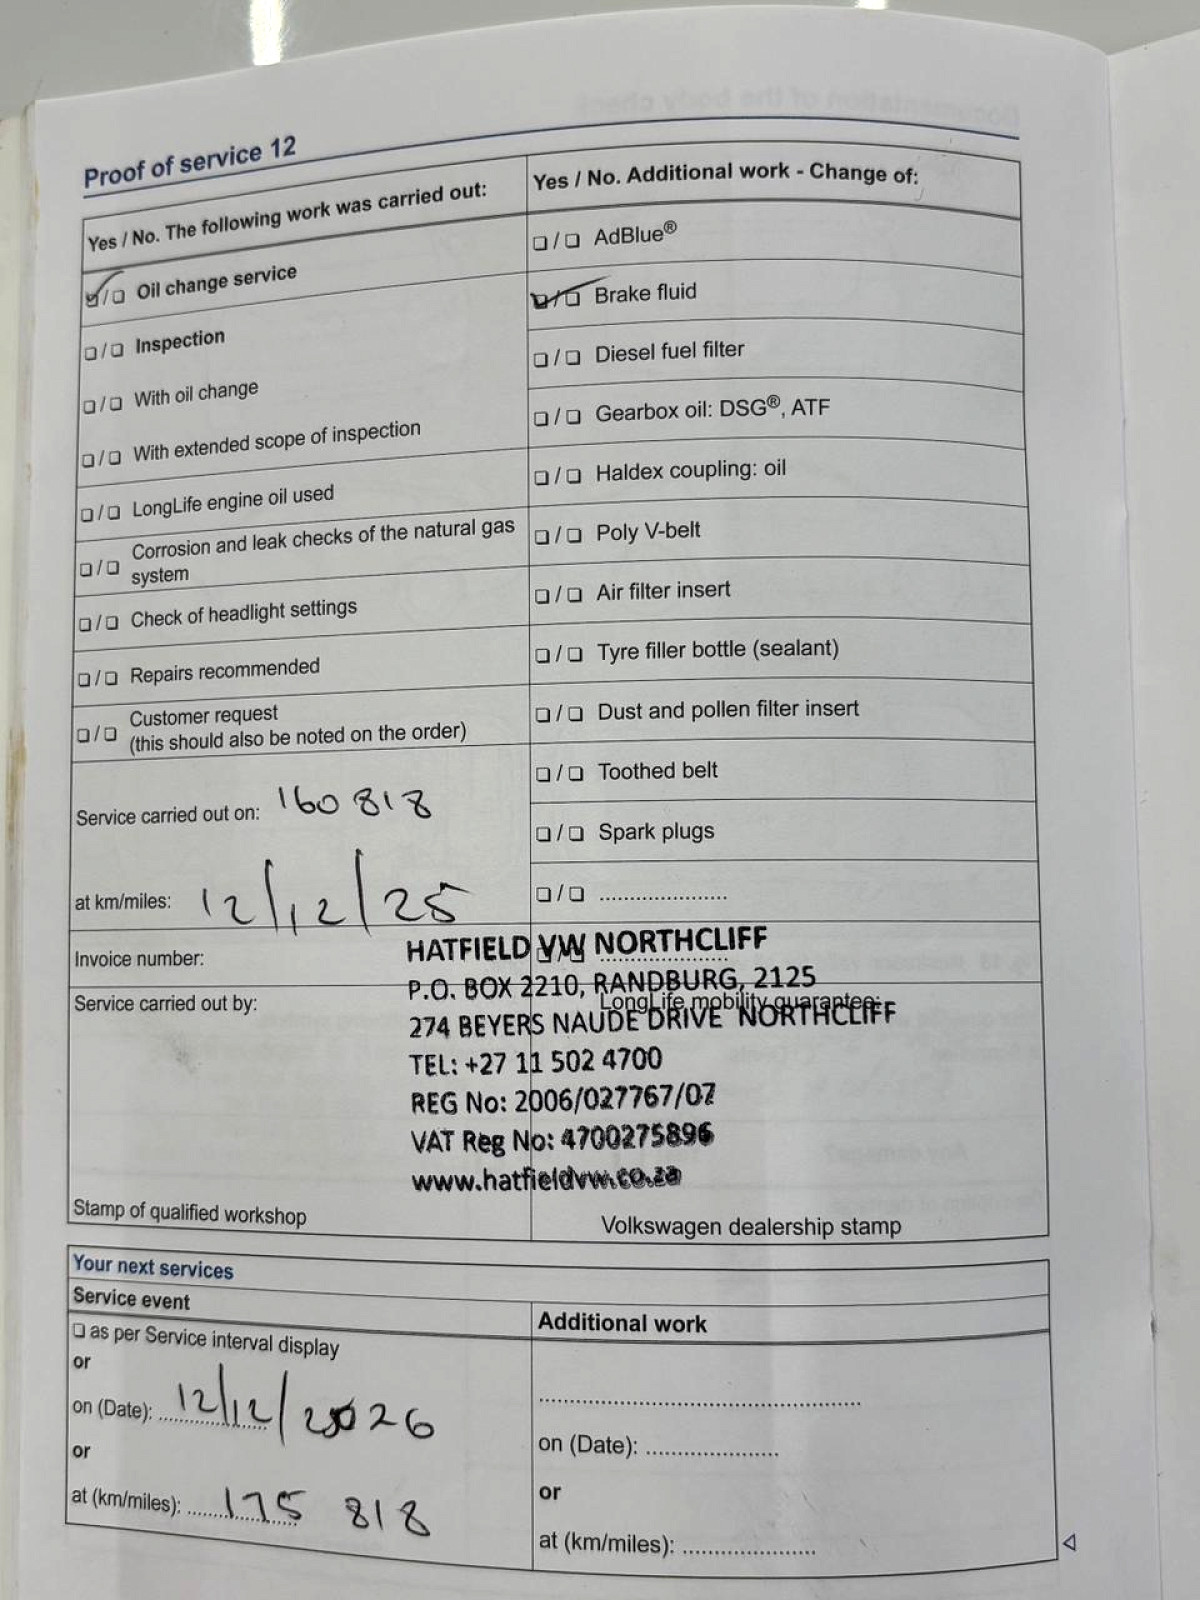 Proof of service 12
Yes / No. The following work was carried out:
☑/☐ Oil change service
☐/☐ Inspection
☐/☐ With oil change
☐/☐ With extended scope of inspection
☐/☐ LongLife engine oil used
☐/☐ Corrosion and leak checks of the natural gas
system
☐/☐ Check of headlight settings
☐/☐ Repairs recommended
☐/☐ Customer request
(this should also be noted on the order)
Service carried out on: 160 818
at km/miles: 12/12/25
Invoice number:
Service carried out by:
Stamp of qualified workshop
Yes / No. Additional work - Change of:
☐/☐ AdBlue®
☑/☐ Brake fluid
☐/☐ Diesel fuel filter
☐/☐ Gearbox oil: DSG®, ATF
☐/☐ Haldex coupling: oil
☐/☐ Poly V-belt
☐/☐ Air filter insert
☐/☐ Tyre filler bottle (sealant)
☐/☐ Dust and pollen filter insert
☐/☐ Toothed belt
☐/☐ Spark plugs
☐/☐ ......................
LongLife mobility guarantee:
HATFIELD VW NORTHCLIFF
P.O. BOX 2210, RANDBURG, 2125
274 BEYERS NAUDE DRIVE NORTHCLIFF
TEL: +27 11 502 4700
REG No: 2006/027767/07
VAT Reg No: 4700275896
www.hatfieldvw.co.za
Volkswagen dealership stamp
Your next services
Service event
☐ as per Service interval display
or
on (Date): 12/12/2026
or
at (km/miles): 175 818
Additional work
......................
on (Date): ......................
or
at (km/miles): ......................